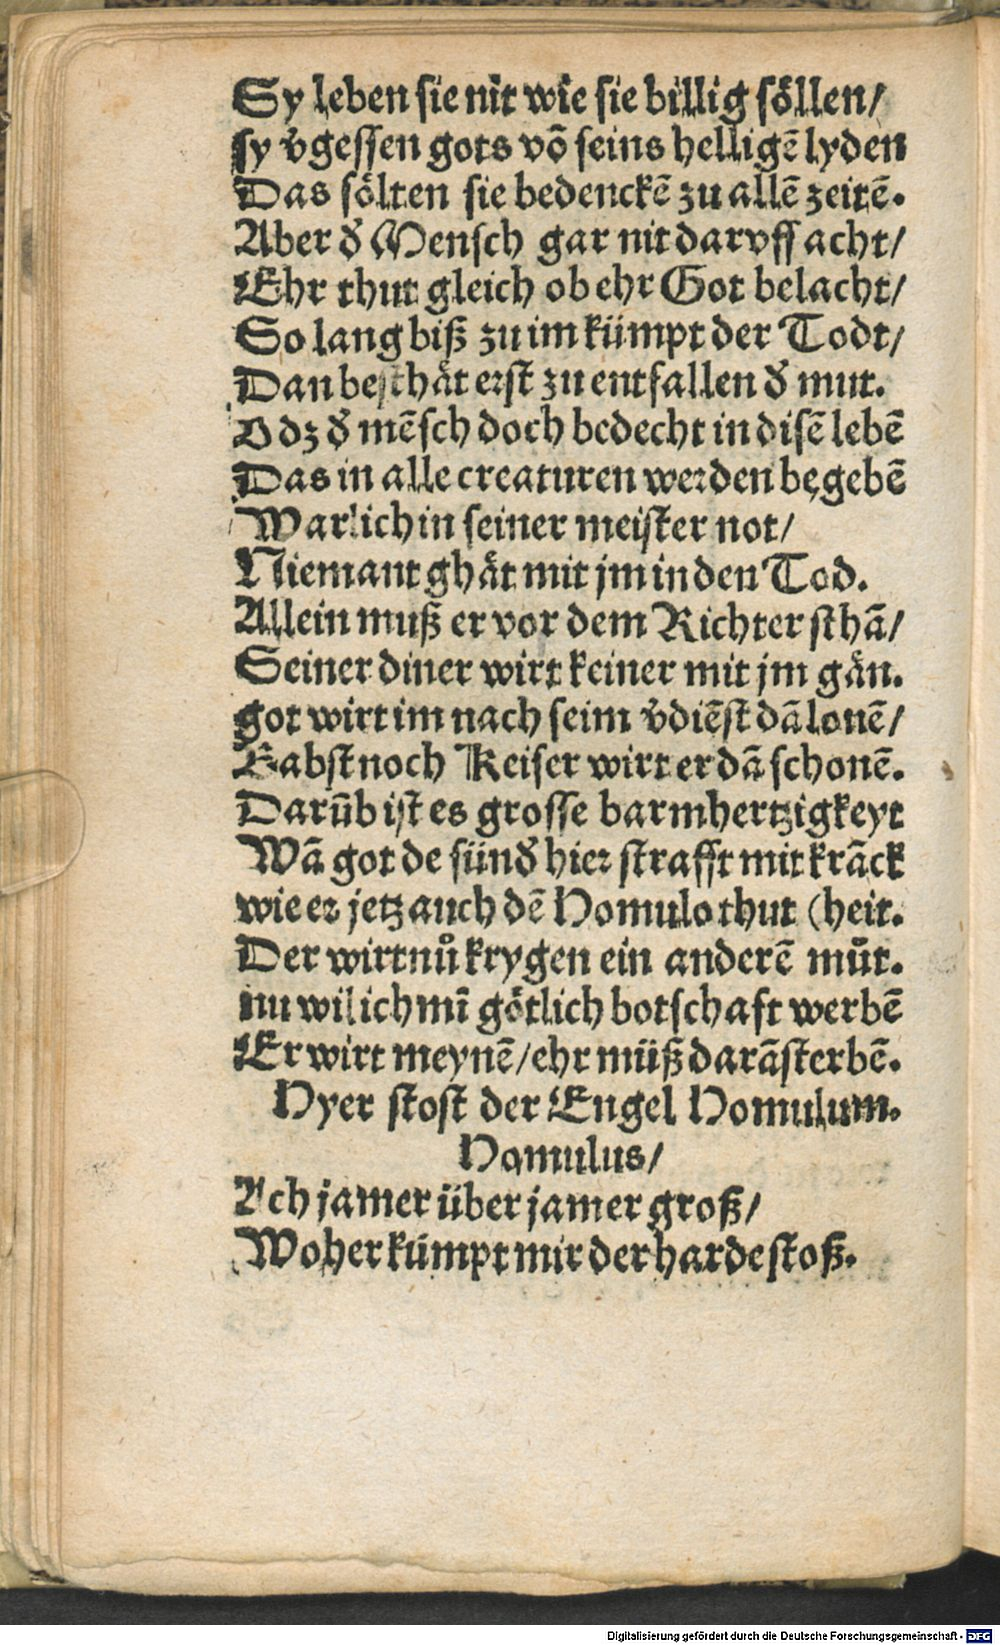 Sy leben sie nit wie sie billig söllen/
sy v̄gessen gots vō seins helligē lyden
Das sölten sie bedenckē zu allē zeitē.
Aber d̄ Mensch gar nit darvff acht/
Ehr thut gleich ob ehr Got belacht/
So lang biß zu im kümpt der Todt/
Dan besthät erst zu entfallen d̄ mut.
O dz d̄ mēsch doch bedecht in disē lebē
Das in alle creaturen werden begebē
Warlich in seiner meister not/
Niemant ghät mit jm in den Tod.
Allein muß er vor dem Richter sthā/
Seiner diner wirt keiner mit jm gän.
got wirt im nach seim v̄diēst dā lonē/
Babst noch Keiser wirt er dā schonē.
Darūb ist es grosse barmhertzigkeyt
Wā got de sünd̄ hier strafft mit krāck
wie er jetz auch dē Homulo thut (heit.
Der wirt nů krygen ein anderē můt.
nu wil ich mī götlich botschaft werbē
Er wirt meynē/ehr müß darā sterbē.
Hyer stost der Engel Homulum.
Homulus/
Ach jamer über jamer groß/
Woher kümpt mir der harde stoß.
Digitalisierung gefördert durch die Deutsche Forschungsgemeinschaft - DFG